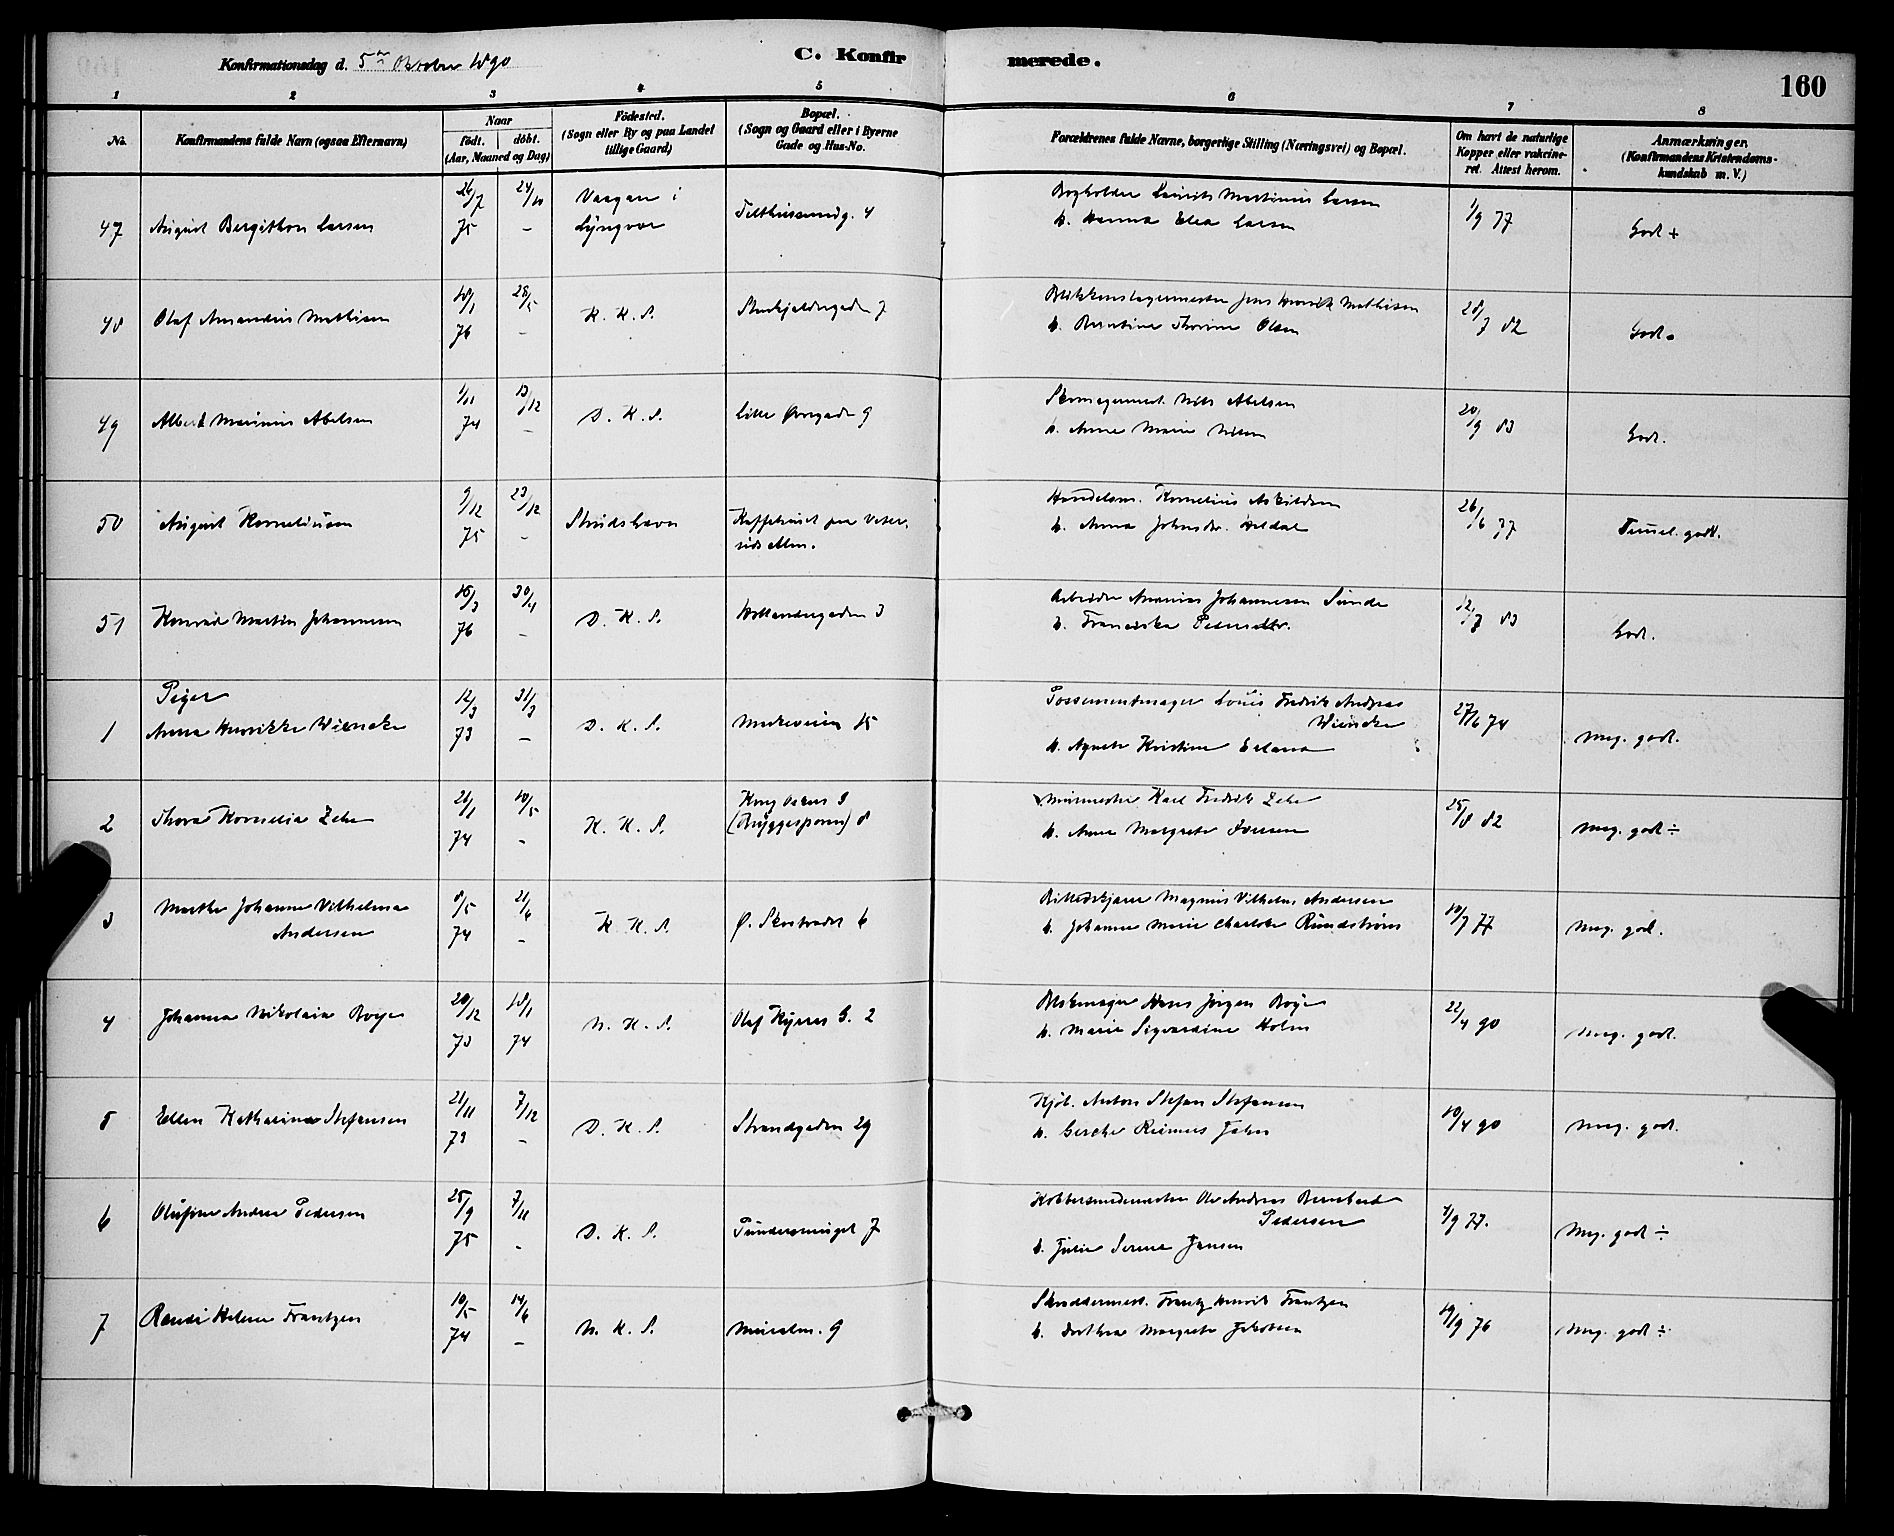 Konfirmationsdag d. 5te Oktober 1890
C. Konfirmerede.
160
1 2 3 4 5 6 7 8
No.
Konfirmandens fulde Navn (ogsaa Efternavn)
Naar
födt. döbt.
(Aar, Maaned og Dag)
Födested.
(Sogn eller By og paa Landet
tillige Gaard)
Bopæl.
(Sogn og Gaard eller i Byerne
Gade og Hus-No.
Forældrenes fulde Navne, borgerlige Stilling (Næringsvei) og Bopæl.
Om havt de naturlige
Kopper eller vakcine-
ret. Attest herom.
Anmærkninger.
(Konfirmandens Kristendoms-
kundskab m. V.)
47 August Bergithon Larsen 26/7 75 24/10 - Vaagan i Lyngvær 4 Bogholder Laurits Martinus Larsen h. Hanna Elea Larsen 1/9 77 Godt +
48 Olaf Amandus Mathisen 18/1 76 28/5 - K. K. S. 7 Blikkenslagermester Jens Henrik Mathisen h. Berntine Thorine Olsen 28/7 82 Godt.
49 Albert Marinus Abelsen 1/11 74 13/12 - D. K. S. Lille Øvregade 9 Skomagermest. Nils Abelsen h. Anne Marie Nilsen 20/9 83 Godt.
50 August Korneliusen 9/12 75 23/12 - Strudshavn Kaffehuset paa Vetrlids Alm. Handelsm. Kornelius Askildsen h. Anna Johnsdr. Heldal 26/6 77 Temmel. godt.
51 Konrad Martin Johannesen 16/3 76 30/4 - D. K. S. Hollændergaden 3 Arbeider Ananias Johannesen Sunde h. Franciska Pedersdtr. 12/7 83 Godt.
Piger
1 Anna Henrikke Wiencke 12/3 73 31/3 - D. K. S. Markeveien 15 Possementmager Louis Fredrik Andreas Wiencke h. Agnete Kristine 27/6 74 Meg. godt.
2 Thora Kornelia Zehe 21/1 74 10/5 - K. K. S. Kong Oscars G (Bryggesporen) 8 Murmester Karl Fredrik Zehe h. Anne Margrete Iversen 25/8 82 Meg. godt ÷
3 Marthe Johanne Vilhelmine Andersen 8/5 74 21/6 - K. K. S. Ø. Skostrædet 6 Billedskjærer Magnus Vilhelm Andersen h. Johanne Marie Charlotte Rundstrøm 10/7 77 Meg. godt.
4 Johanna Nikolaia Boye 20/12 73 18/1 74 N. K. S. Olaf Kyrres G. 2 Blokmager Hans Jørgen Boye h. Marie Sigvardine Holm 22/4 90 Meg. godt.
5 Ellen Katharina Stefansen 21/11 73 7/12 - D. K. S. Strandgaden 29 Kjöb. Anton Stefan Stefansen h. Gesche Reimers Jahn 10/4 90 Meg. godt.
6 Olufine Andrea Pedersen 25/9 75 7/11 - D. K. S. 7 Kobbersmedemester Ole Andreas Bernhard Pedersen h. Julie Serine Jansen 4/9 77. Meg. godt ÷
7 Randi Helene Frantzen 10/5 74 14/6 - N. K. S. Muralm. 9 Skræddermest. Frantz Henrik Frantzen h. Dorthea Margrete Jakobsen 19/9 76 Meg. godt ÷